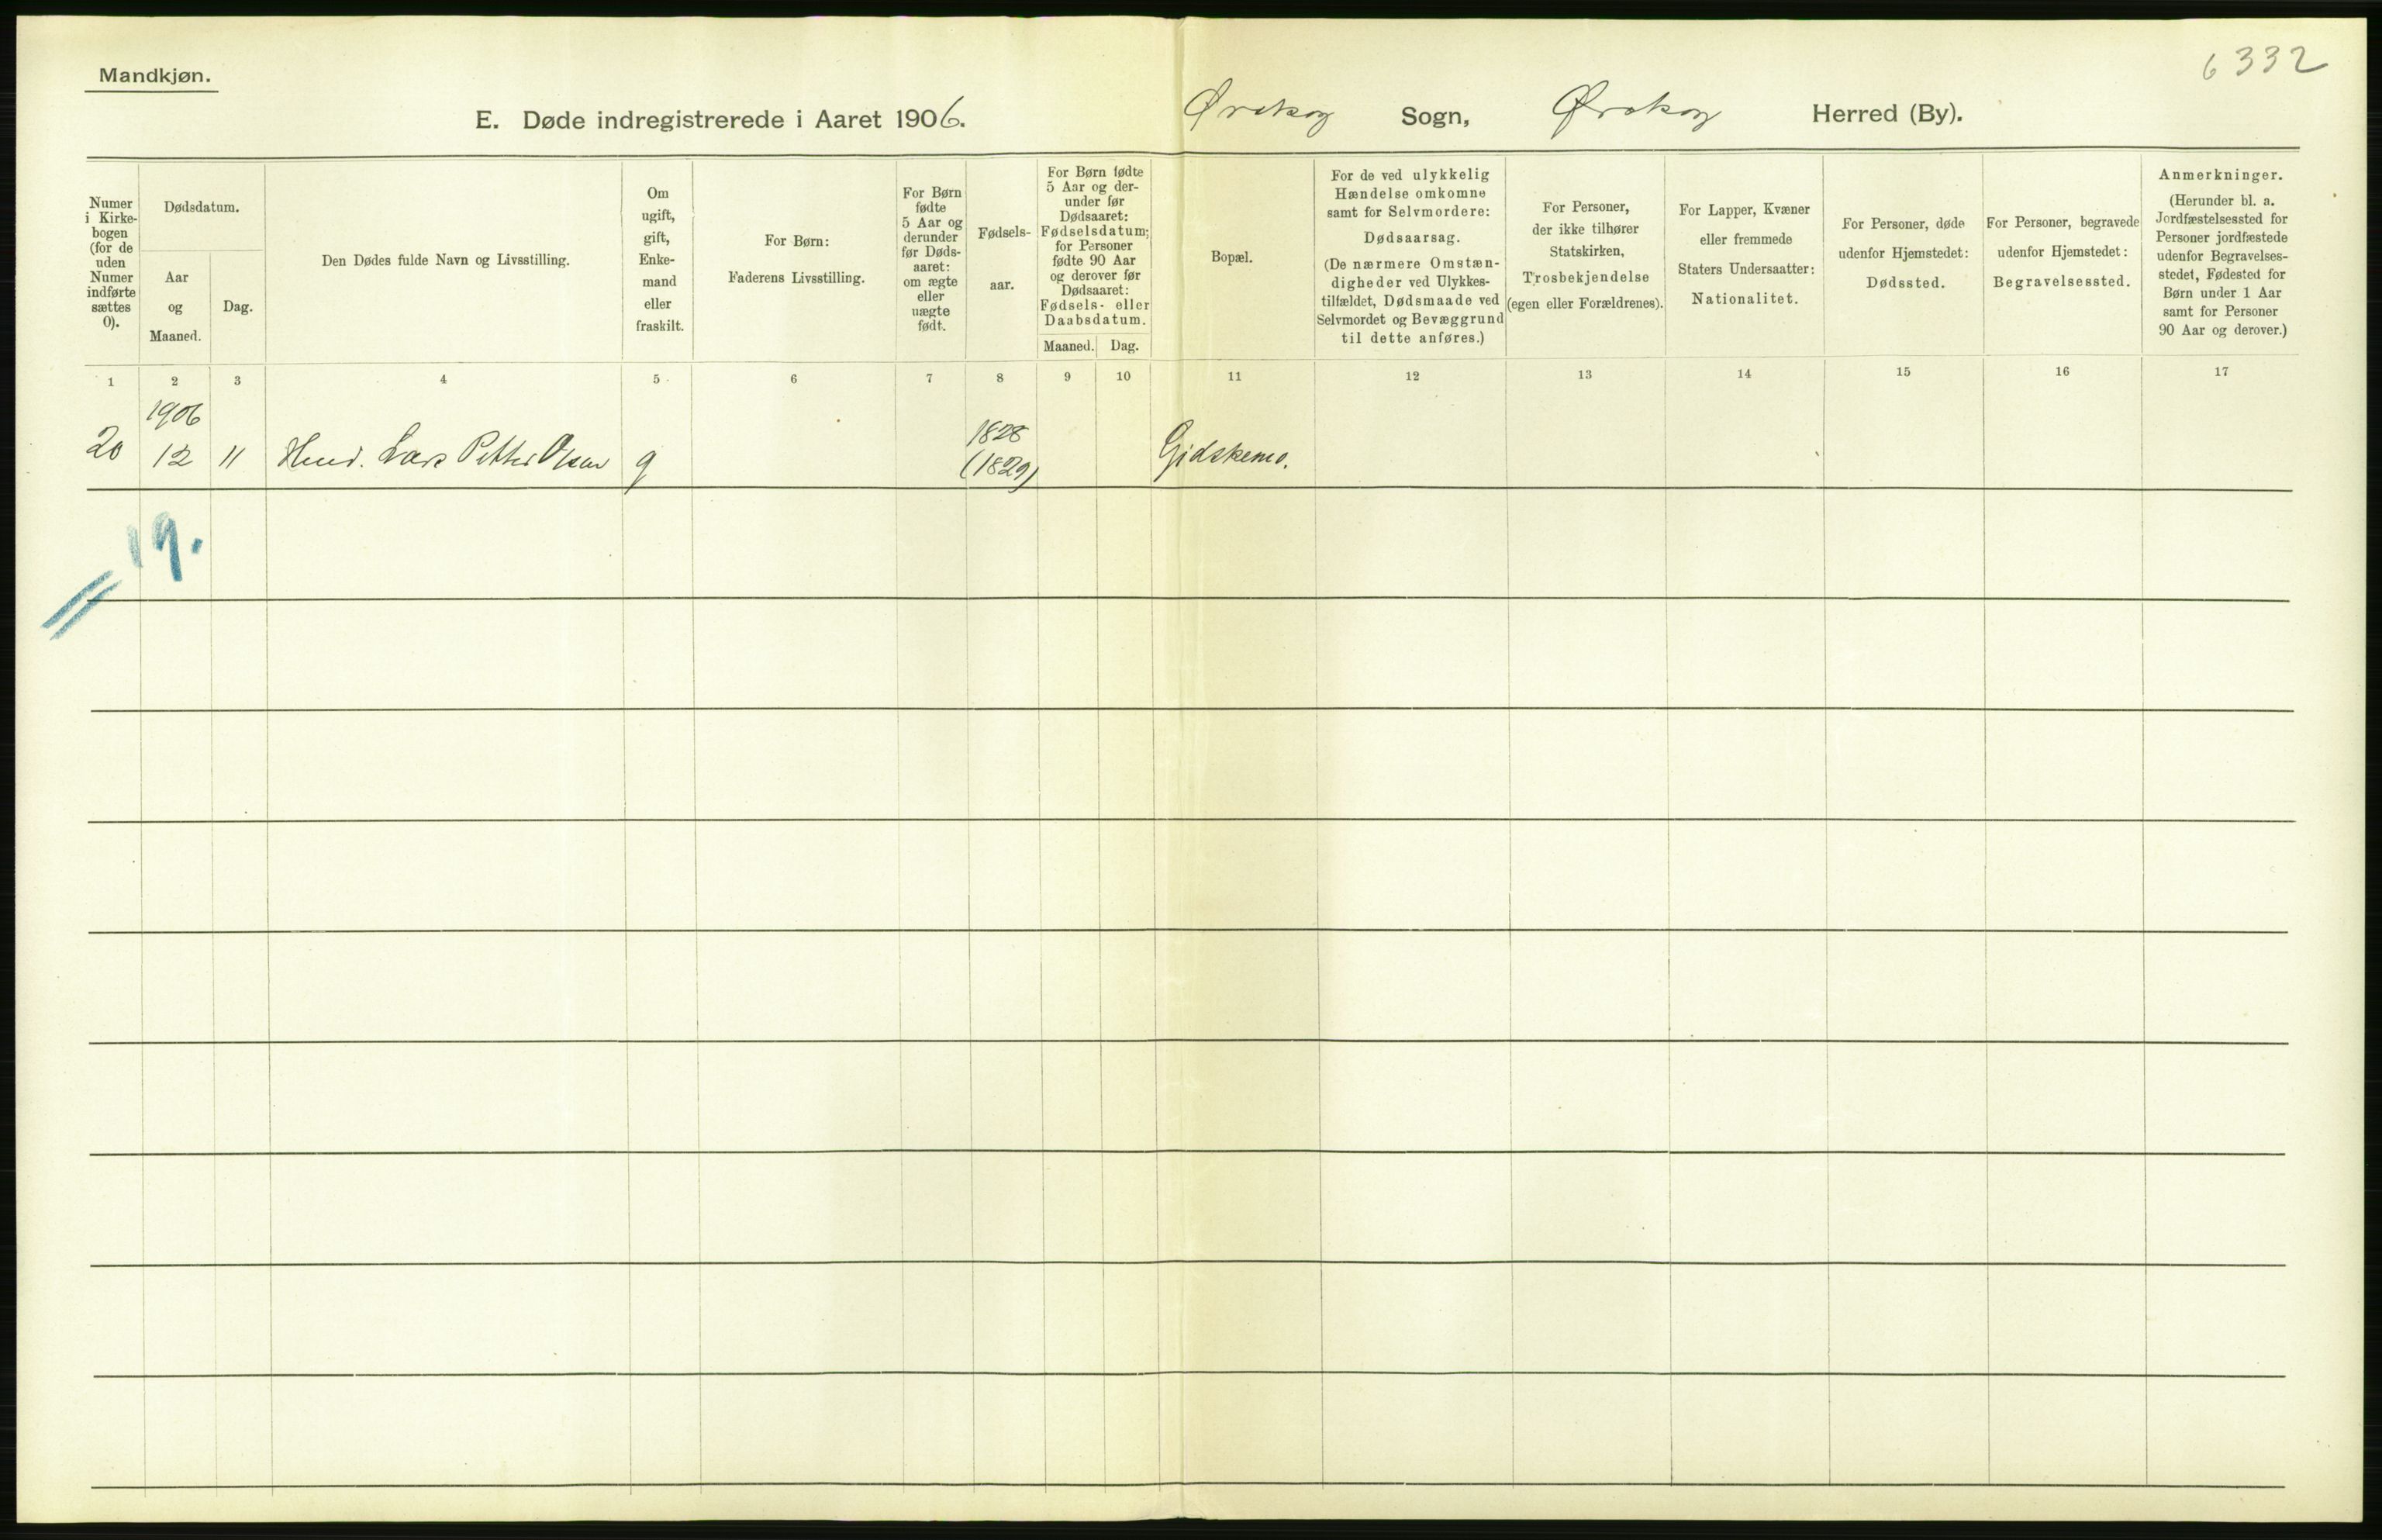 6332
Mandkjøn.
E. Døde indregistrerede i Aaret 1906. Ørskog Sogn, Ørskog Herred (By).
Numer
i Kirke-
bogen
(for de
uden
Numer
indførte
sættes
0).
Dødsdatum.
Aar
og
Maaned.
Dag.
Den Dødes fulde Navn og Livsstilling.
Om
ugift,
gift,
Enke-
mand
eller
fraskilt.
For Børn:
Faderens Livsstilling.
For Børn
fødte
5 Aar og
derunder
før Døds-
aaret:
om ægte
eller
uægte
født.
Fødsels-
aar.
For Børn fødte
5 Aar og der-
under før
Dødsaaret:
Fødselsdatum;
for Personer
fødte 90 Aar
og derover før
Dødsaaret:
Fødsels- eller
Daabsdatum.
Maaned. Dag.
Bopæl.
For de ved ulykkelig
Hændelse omkomne
samt for Selvmordere:
Dødsaarsag.
(De nærmere Omstæn-
digheder ved Ulykkes-
tilfældet, Dødsmaade ved
Selvmordet og Bevæggrund
til dette anføres.)
For Personer,
der ikke tilhører
Statskirken,
Trosbekjendelse
(egen eller Forældrenes).
For Lapper, Kvæner
eller fremmede
Staters Undersaatter:
Nationalitet.
For Personer, døde
udenfor Hjemstedet:
Dødssted.
For Personer, begravede
udenfor Hjemstedet:
Begravelsessted.
Anmerkninger.
(Herunder bl. a.
Jordfæstelsessted for
Personer jordfæstede
udenfor Begravelses-
stedet, Fødested for
Børn under 1 Aar
samt for Personer
90 Aar og derover.)
1 2 3 4 5 6 7 8 9 10 11 12 13 14 15 16 17
1906 1828
20 12 11 Lars Petter Olsen g (1829) Gidskemo.
19.